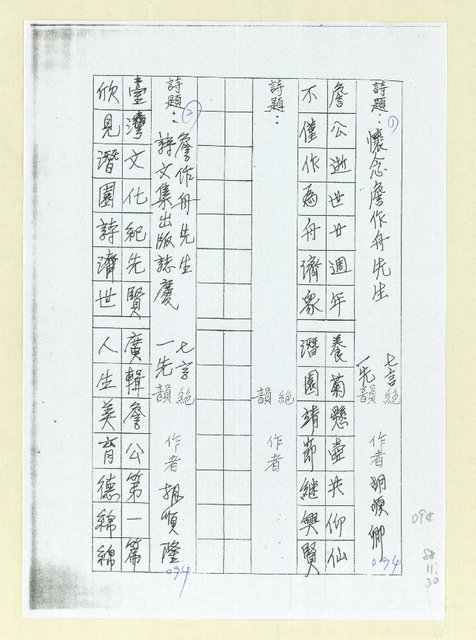 ①
詩題：懷念詹作舟先生
七言絕
一先韻
作者 胡順卿
094
詹公逝世廿週年
養菊懸壺共仰仙
不僅作為舟濟眾
潛園靖節繼興賢
詩題：
絕
韻
作者
②
詩題：詹作舟先生
詩文集出版誌慶
七言絕
一先韻
作者 胡順隆
094
臺灣文化紀先賢
廣輯詹公第一篇
欣見潛園詩濟世
人生美育德綿綿
094
88
11.
30